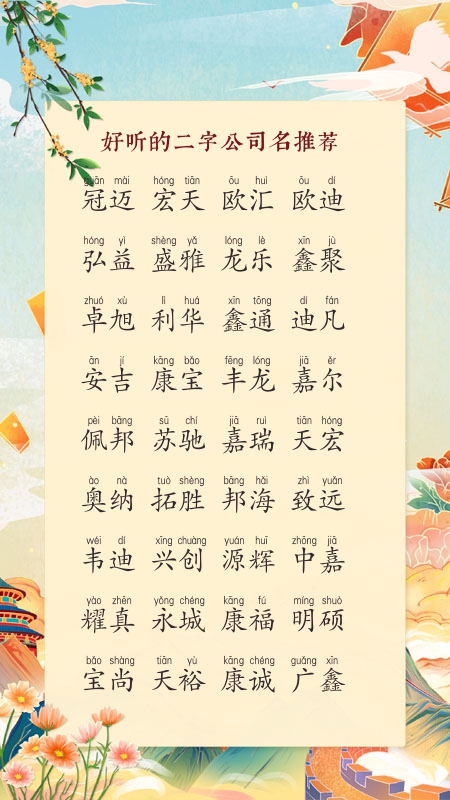 好听的二字公司名推荐
guān mài hóng tiān ōu huì ōu dí
冠迈 宏天 欧汇 欧迪
hóng yì shèng yǎ lóng lè xīn jù
弘益 盛雅 龙乐 鑫聚
zhuó xù lì huá xīn tōng dí fán
卓旭 利华 鑫通 迪凡
ān jí kāng bǎo fēng lóng jiā ěr
安吉 康宝 丰龙 嘉尔
pèi bāng sū chí jiā ruì tiān hóng
佩邦 苏驰 嘉瑞 天宏
ào nà tuò shèng bāng hǎi zhì yuǎn
奥纳 拓胜 邦海 致远
wéi dí xīng chuàng yuán huī zhōng jiā
韦迪 兴创 源辉 中嘉
yào zhēn yǒng chéng kāng fú míng shuò
耀真 永城 康福 明硕
bǎo shàng tiān yù kāng chéng guǎng xīn
宝尚 天裕 康诚 广鑫